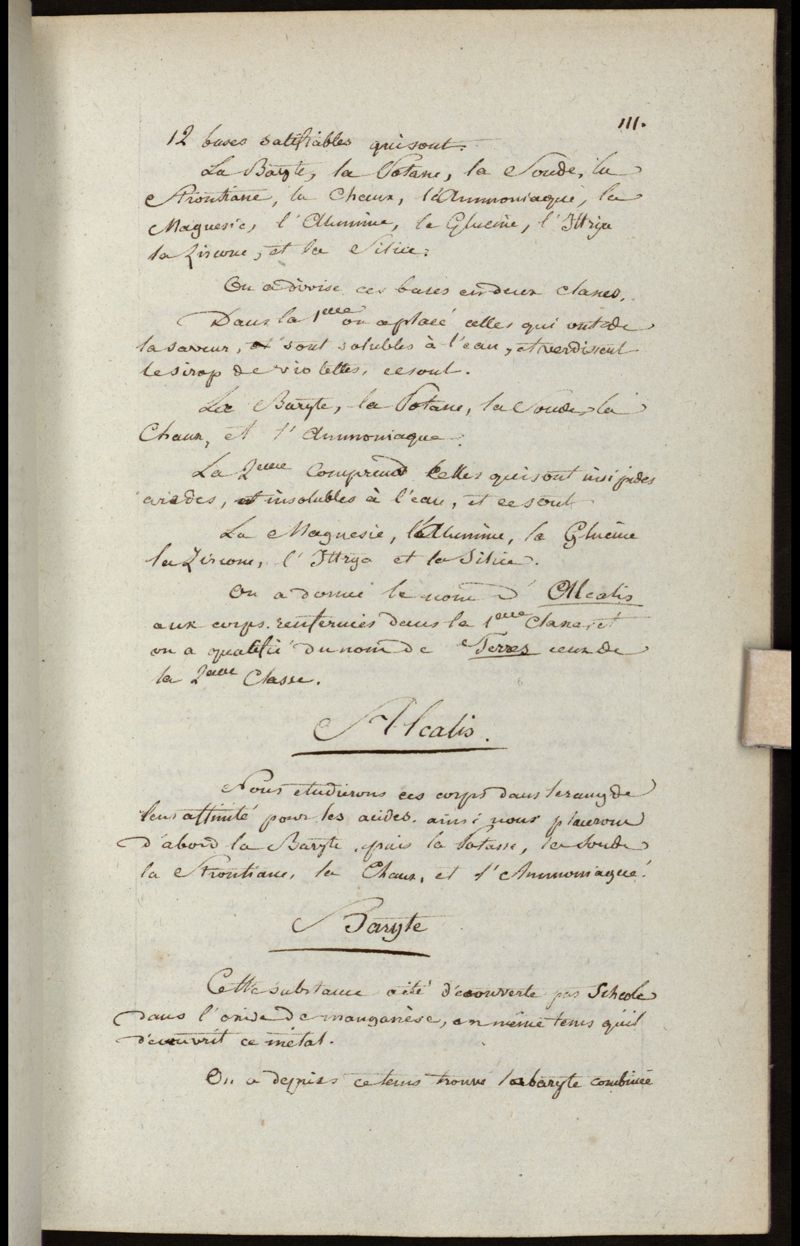 111.
12 bases salifiables qui sont.
La Baryte, la Potasse, la Soude, la
Strontiane, la Chaux, l'Ammoniaque, la
Magnesie, l'Alumine, la Glucine, l'Ittrya
la Zircone, et la Silice.
On a divisé ces bases en deux classes.
Dans la 1ere on a placé celles qui ont de
la saveur, et sont solubles à l'eau, et verdissent
le sirop de violettes, ce sont.
La Baryte, la Potasse, la Soude, la
Chaux, et l'Ammoniaque.
La 2eme comprend celles qui sont insipides
arides, et insolubles à l'eau, et ce sont
La Magnesie, l'Alumine, la Glucine
la Zircone, l'Ittrya et la Silice.
On a donné le nom d'Alcalis
aux corps renfermés dans la 1ere Classe, et
on a qualifié du nom de Terres ceux de
la 2eme Classe.
Alcalis.
Nous etudierons ces corps dans le rang de
leur affinité pour les acides. ainsi nous placerons
d'abord la Baryte, puis la Potasse, la Soude
la Strontiane, la Chaux, et l'Ammoniaque.
Baryte
Cette substance a été découverte par Scheele
dans l'oxide de manganèse, en même tems qu'il
découvrit ce métal.
On a depuis ce tems trouvé la baryte combinée